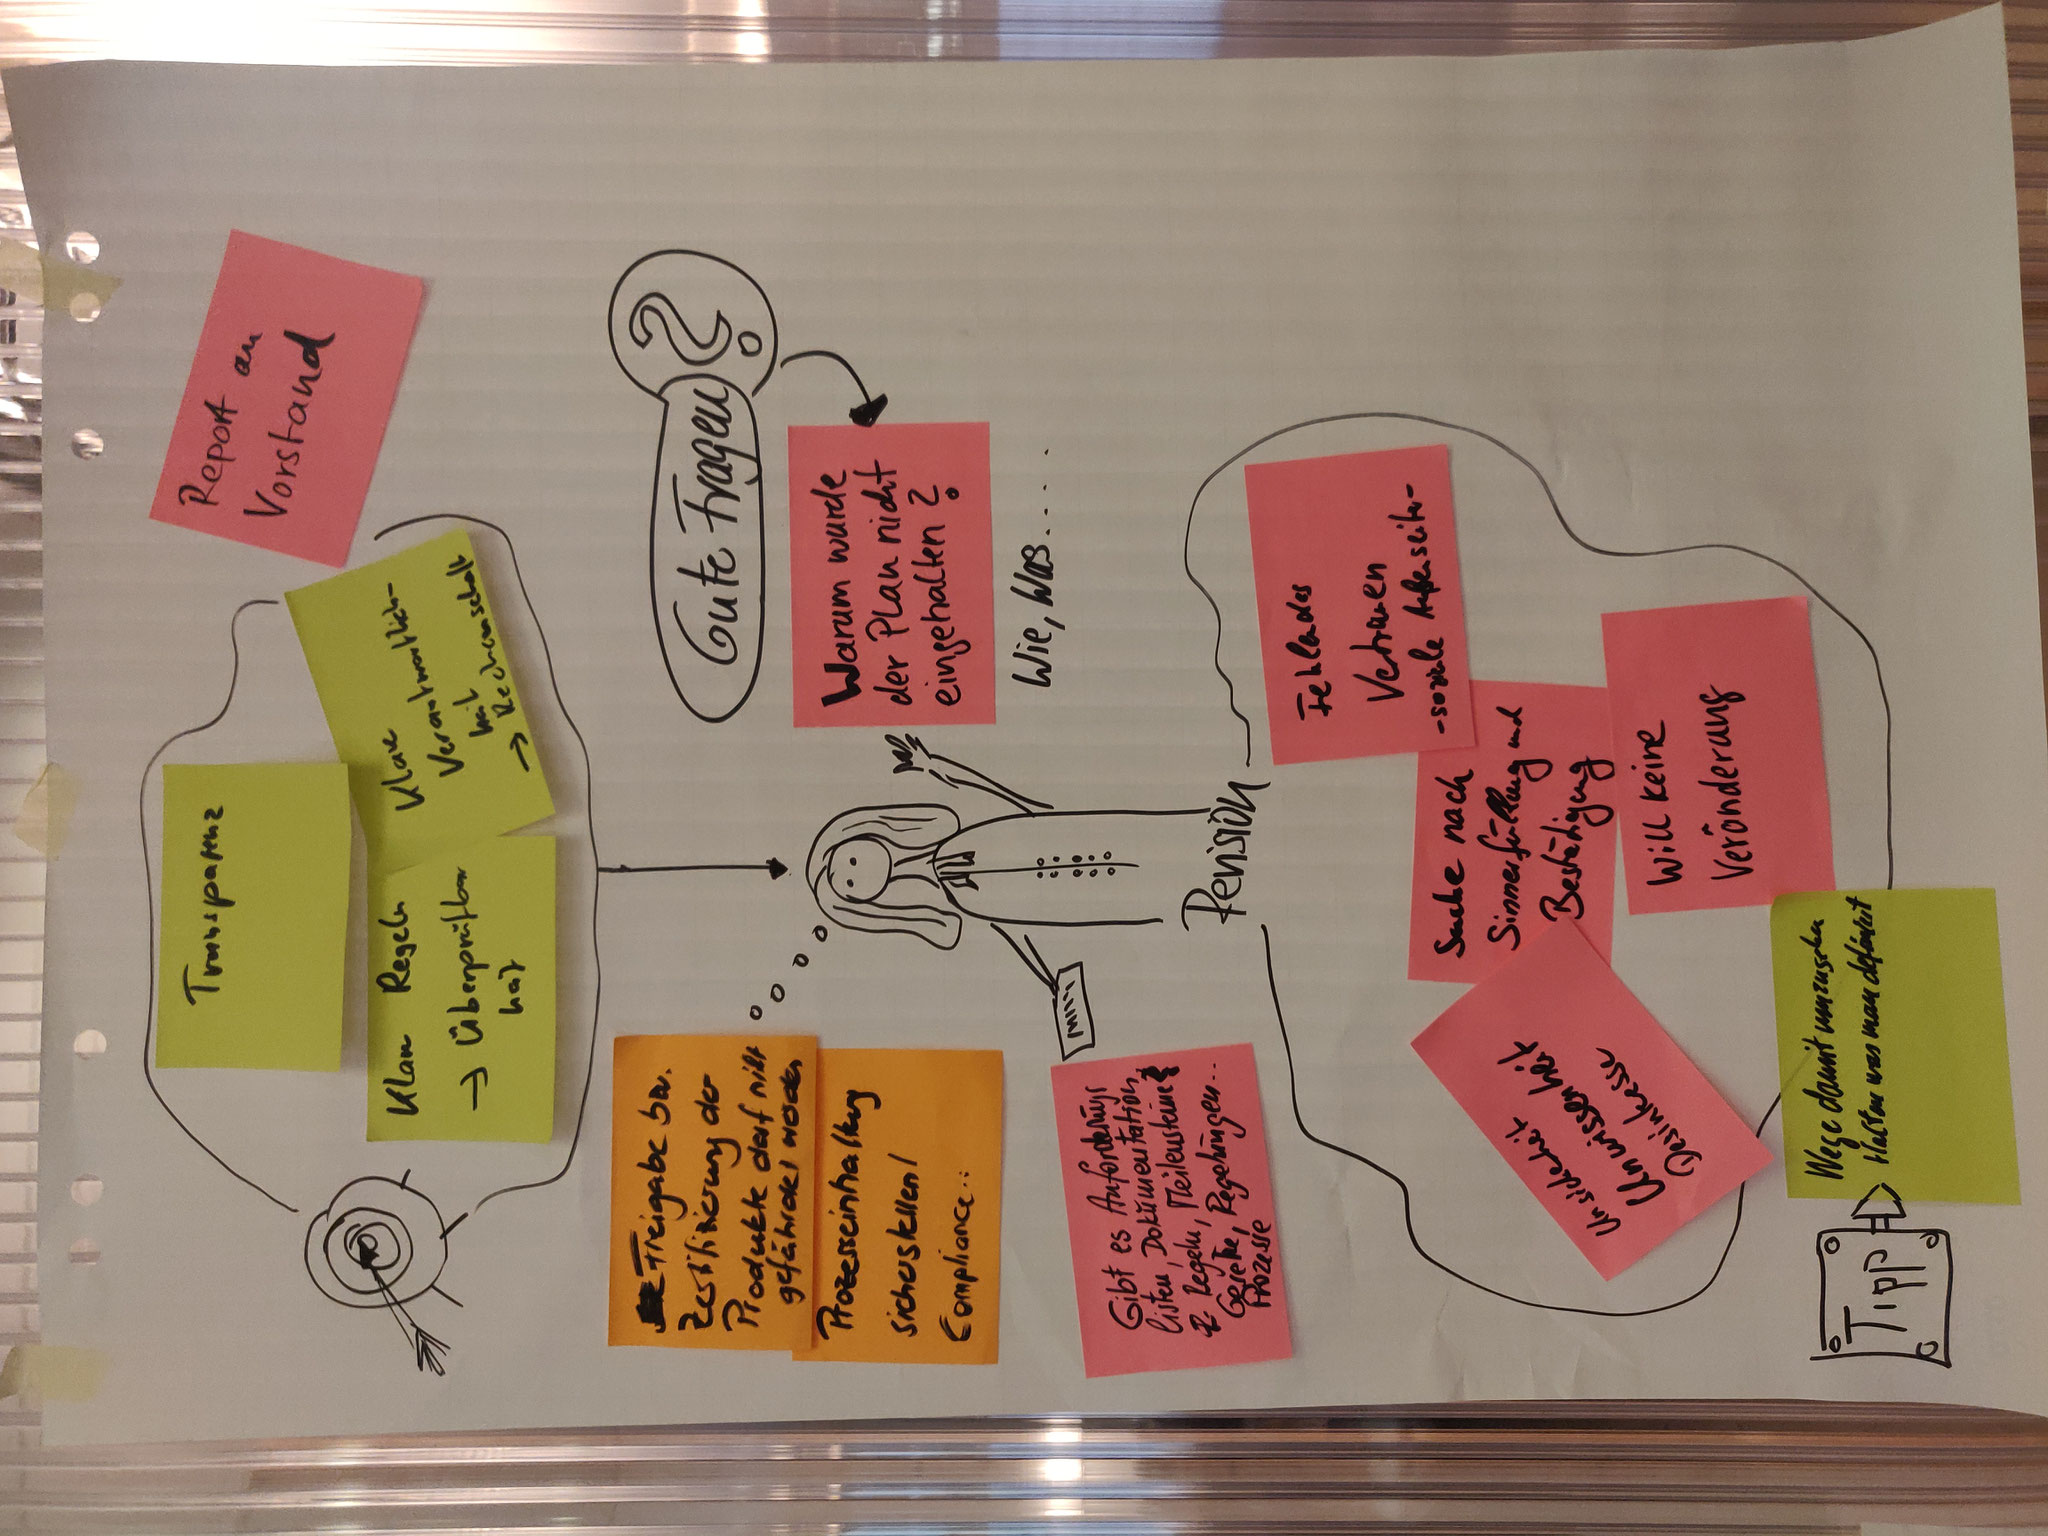 Report an
Vorstand
Transparenz
Klare
Verantwortlich-
keit
→ Rechenschaft
Klare Regeln
→ Überprüfbar
keit
Gute Fragen
?
Warum wurde
der Plan nicht
eingehalten?
Wie, Was.....
Freigabe bzw.
Zertifizierung der
Produkte darf nicht
gefährdet werden
Prozesseinhaltung
sicherstellen!
Compliance...
Gibt es Anforderungs
listen, Dokumentation,
Regeln, Meilensteine
Gesetze, Regelungen...
Prozesse
Revision
Fehlendes
Vertrauen
- soziale Außenseiter-
Suche nach
Sinnerfüllung und
Bestätigung
Will keine
Veränderung
Unsicherheit
Unwissenheit
Desinteresse
Tipp
Wege damit umzugehen
was man definiert